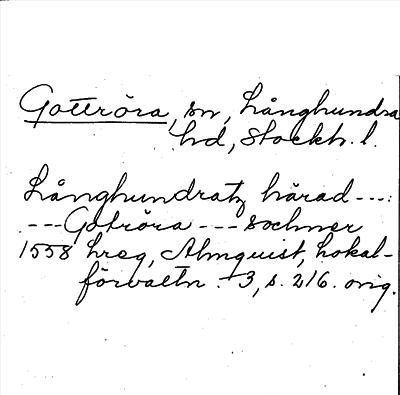 Gottröra, sn, Långhundra
hd, Stockh. l.
Långhundratz härad ---:
--- Gotröra --- sochner
1558 hreg, Almquist, Lokal-
förvaltn. 3, s. 216. orig.